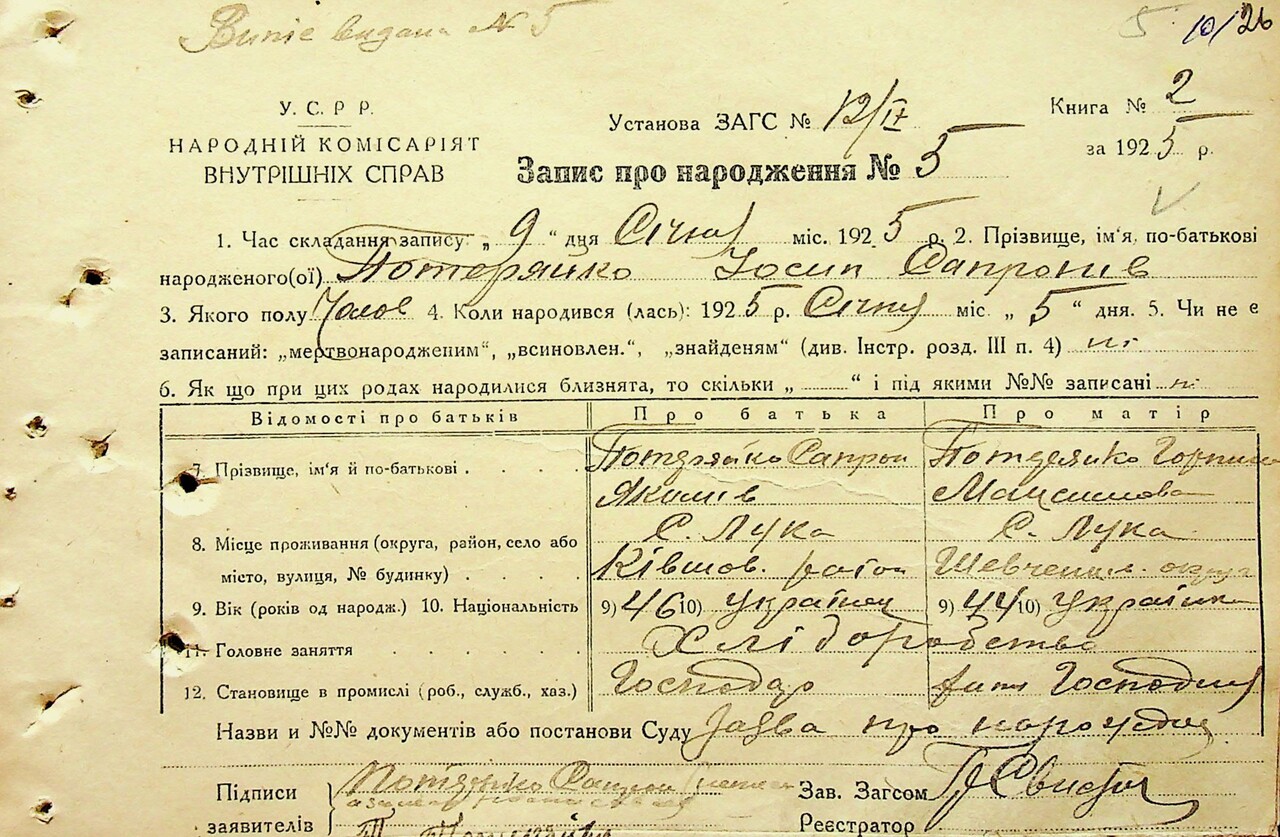 Випис видана № 5
5 10/26
У. С. Р. Р.
НАРОДНІЙ КОМІСАРІЯТ
ВНУТРІШНІХ СПРАВ
Установа ЗАГС № 12/IV
Книга № 2
за 1925 р.
Запис про народження № 5
1. Час складання запису „ 9 “ дня Січня міс. 1925 р. 2. Прізвище, ім'я, по-батькові
народженого(ої) Йосип Сапронів
3. Якого полу Чолов 4. Коли народився (лась): 1925 р. Січня міс. „ 5 “ дня. 5. Чи не є
записаний: „мертвонародженим“, „всиновлен.“, „знайденям“ (див. Інстр. розд. III п. 4) ні
6. Як що при цих родах народилися близнята, то скільки „ “ і під якими №№ записані ні
Відомості про батьків Про батька Про матір
7. Прізвище, ім'я й по-батькові . . . . Сапрон
Якимів Максимова
8. Місце проживання (округа, район, село або С. Лука С. Лука
місто, вулиця, № будинку) . . . . район Шевченк. округа
9. Вік (років од народж.) 10. Національність 9) 46 10) Українец 9) 44 10) Українка
11. Головне заняття . . . . . . Хліборобство
12. Становище в промислі (роб., служб., хаз.) Господар Господиня
Назви и №№ документів або постанови Суду Заява про народження
Підписи
заявителів
Сапрон
Зав. Загсом
Реєстратор